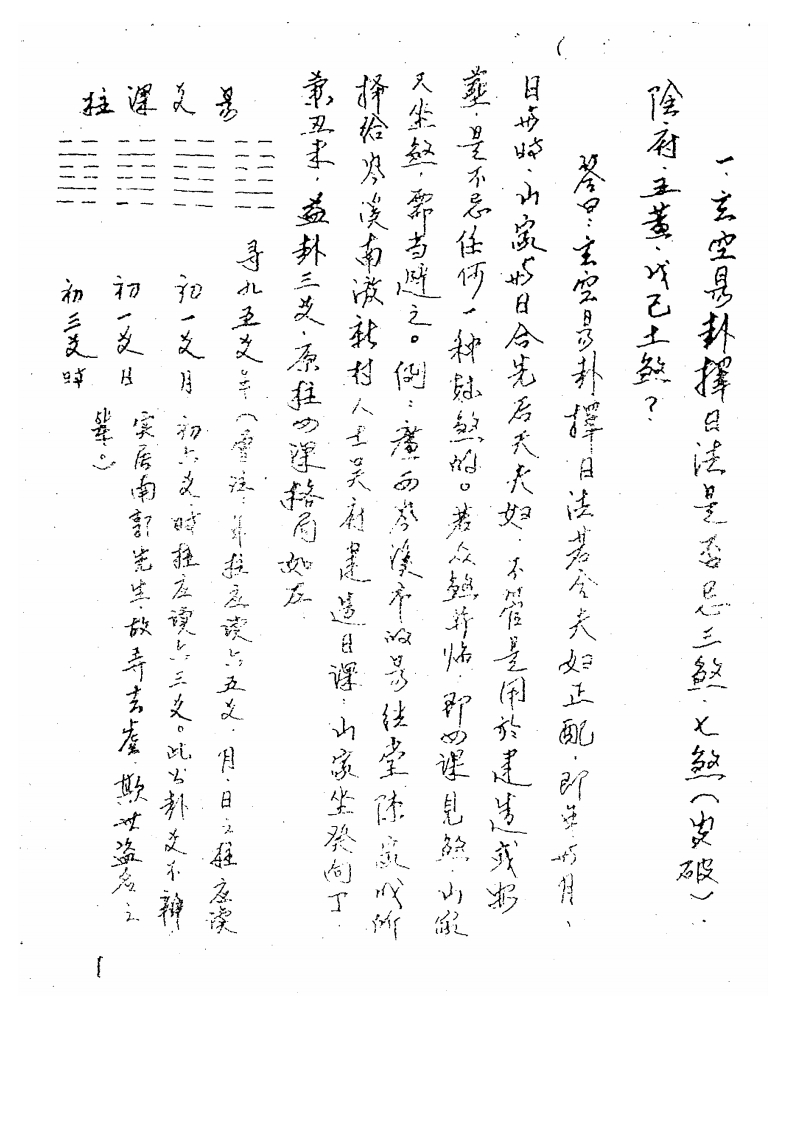 一、玄空易卦擇日法是否忌三煞、七煞（岁破）、
陰府、五黄、戊己土煞？
答曰：玄空易卦擇日法若合夫妇正配，即年与月、
日与時、山家与日合先后天夫妇，不管是用於建造或安
葬，是不忌任何一种神煞的。若众煞并临，即四课見煞，山家
又坐煞，需当避之。例：廣西岑溪市的易继堂陈家戊所
择给岑溪南渡新村人士吴府建造日课，山家坐癸向丁
兼丑未，益卦三爻，原柱四课格局如左
易爻课柱
寻九五爻年（雪註：年柱应读六五爻，月、日之柱应读
初一爻月 初六爻，時柱应读六三爻。此公卦爻不辨，
初一爻日 实居南郭先生，故弄玄虚，欺世盗名之
初三爻时 輩。）